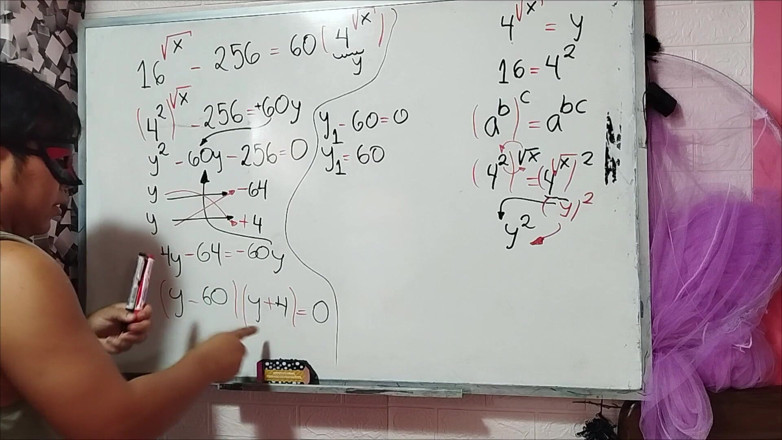 16^√x - 256 = 60(4^√x)
y
(4²)^√x - 256 = +60y
y² - 60y - 256 = 0
y -64
y +4
4y - 64 = -60y
(y - 60)(y + 4) = 0
y₁ - 60 = 0
y₁ = 60
4^√x = y
16 = 4²
(a^b)^c = a^bc
(4²)^√x = (4^√x)²
(y)²
y²